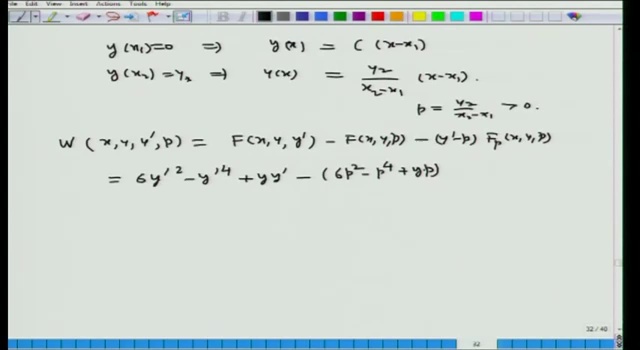 File Edit View Insert Actions Tools Help
y(x₁)=0 ⇒ y(x) = C (x-x₁)
y(x₂)=y₂ ⇒ y(x) = y₂/(x₂-x₁) (x-x₁).
p = y₂/(x₂-x₁) > 0.
W (x, y, y', p) = F(x, y, y') - F(x, y, p) - (y'-p) F_p (x, y, p)
= 6y'² - y'⁴ + yy' - (6p² - p⁴ + yp)
32 / 40
32